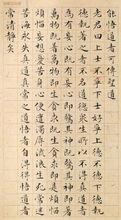 能悟道者可傳聖道
老君曰上士不爭下士好爭上德不德下德執
德執著之者不明道德眾生所以不得真道者
為有妄心既有妄心即驚其神既驚其神即著
萬物既著萬物即生貪求既生貪求即是煩惱
煩惱妄想憂苦身心便遭濁辱流浪生死常沉
苦海永失真道真常之道悟者自得得悟道者
常清靜矣